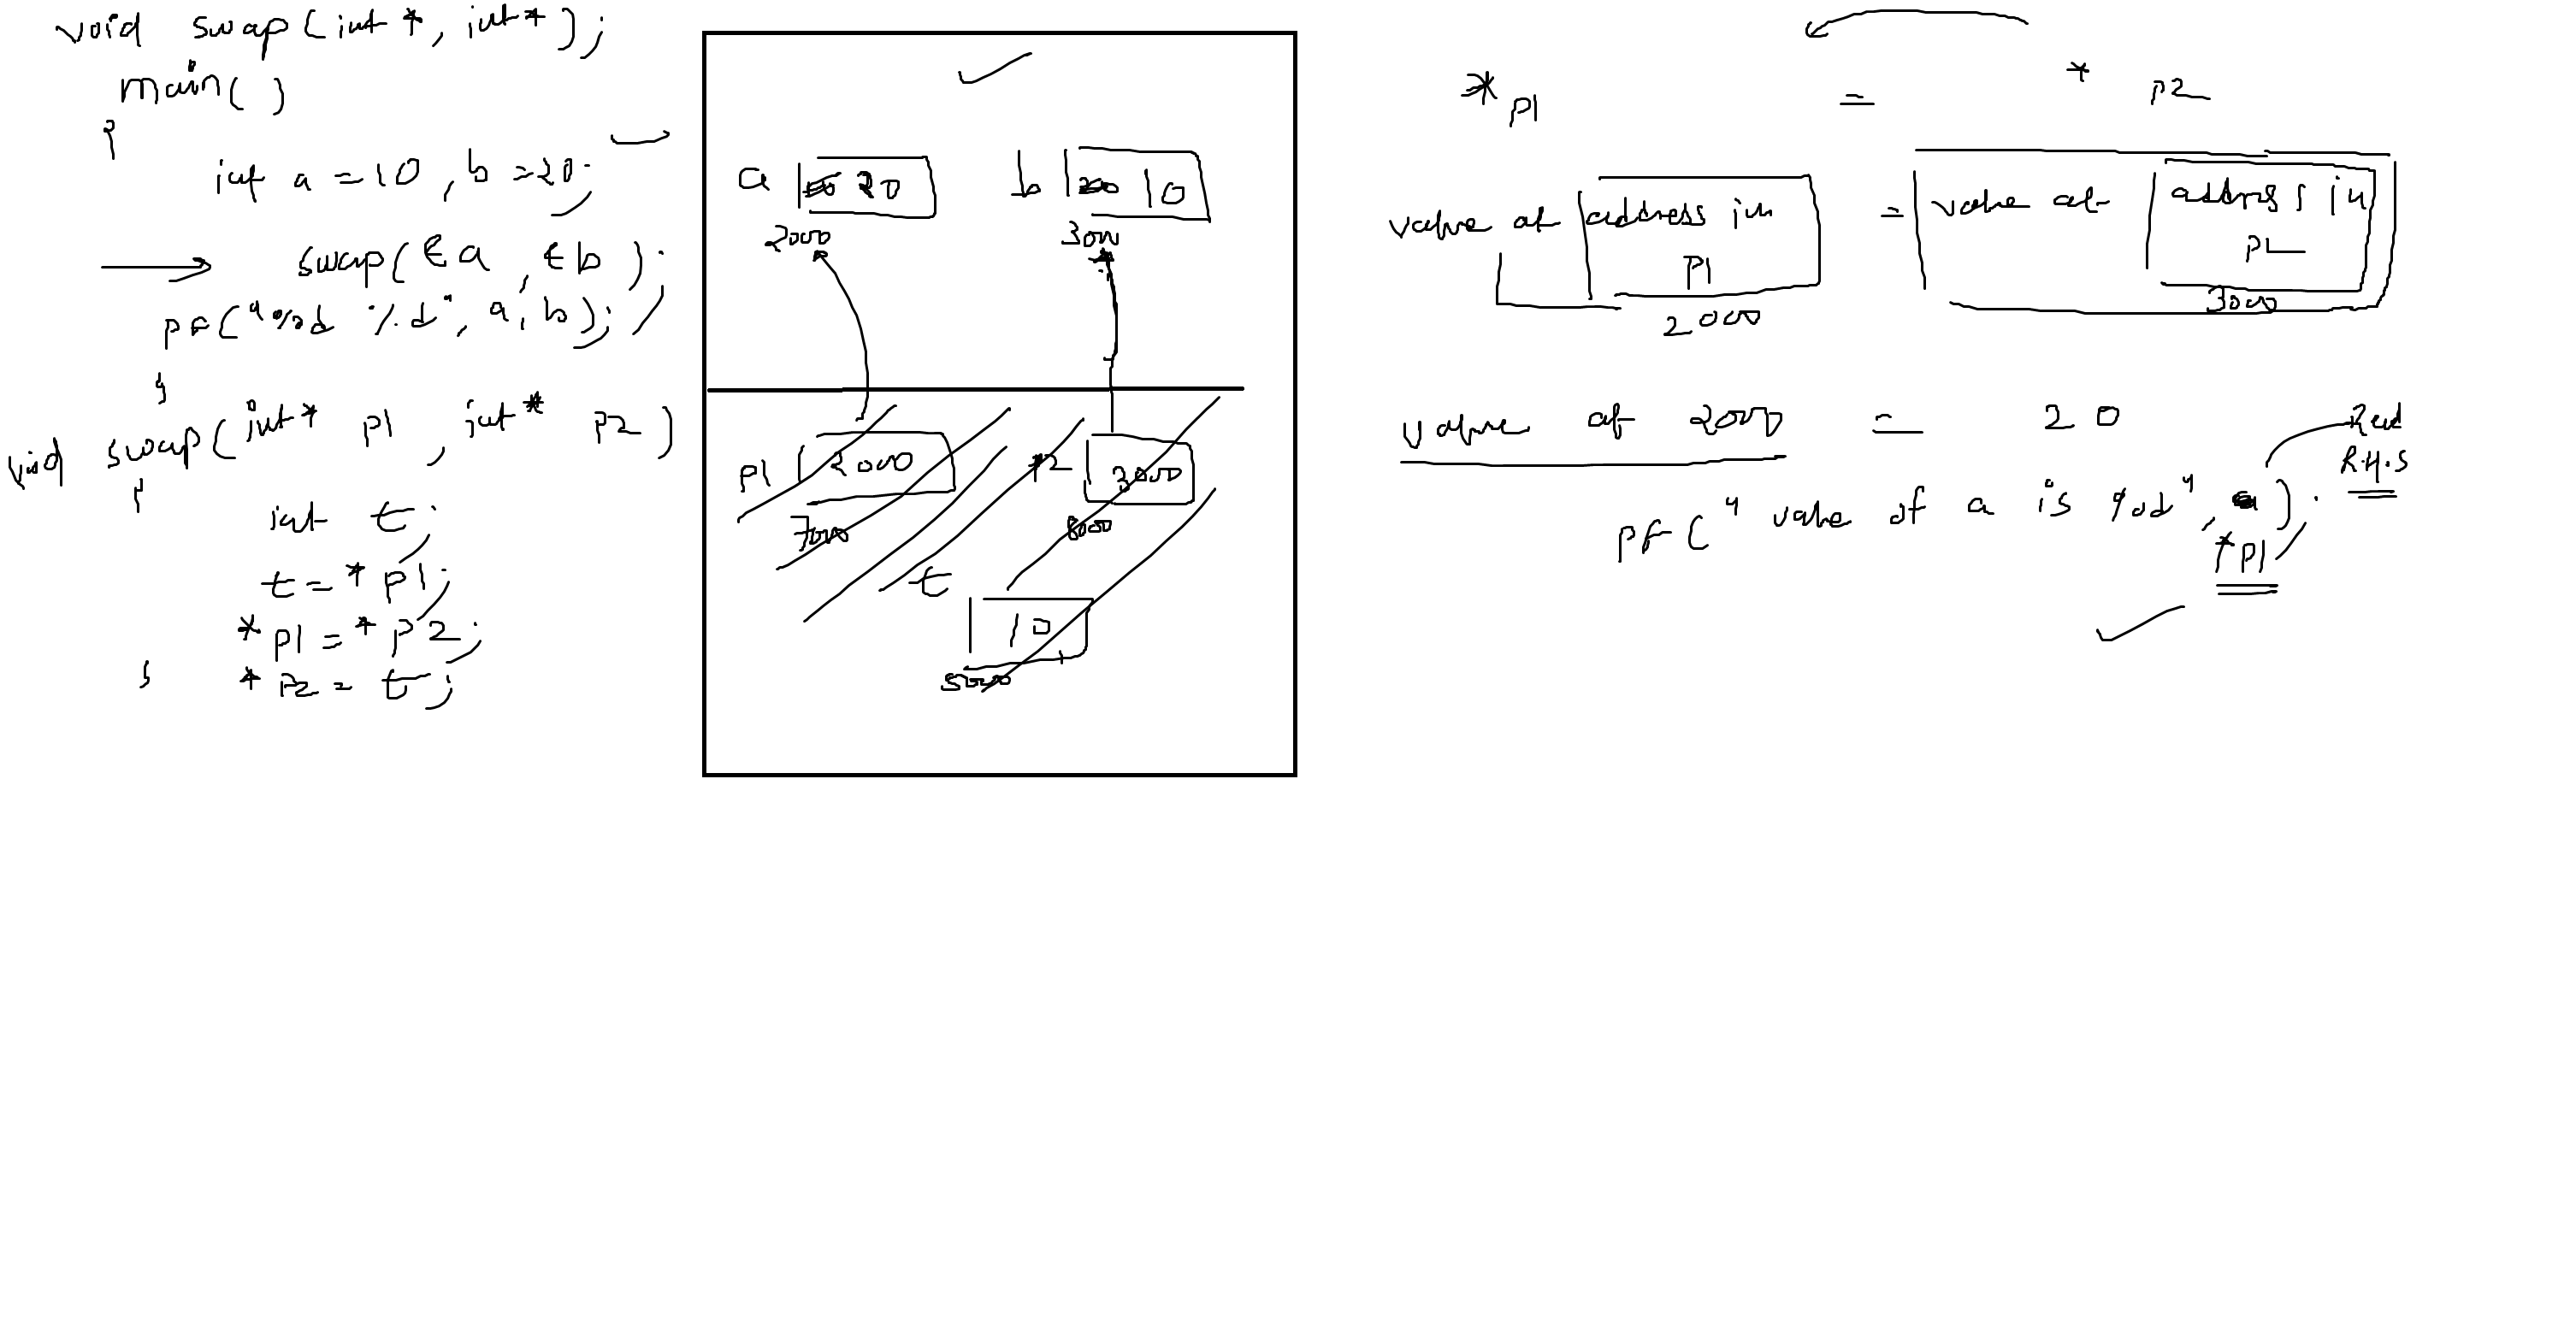 void swap(int *, int *);
main( )
{
int a = 10, b = 20;
swap(&a, &b);
pf("%d %d", a, b);
}
void swap(int* p1, int* p2)
{
int t;
t = *p1;
*p1 = *p2;
*p2 = t;
}
a 10 20 b 20 10
2000 3000
p1 2000 p2 3000
7000 8000
t
10
5000
*p1 = * p2
value at address in p1 = value at address in p2
2000 3000
value at 2000 = 20
Read
R.H.S
pf("value of a is %d", a);
*p1